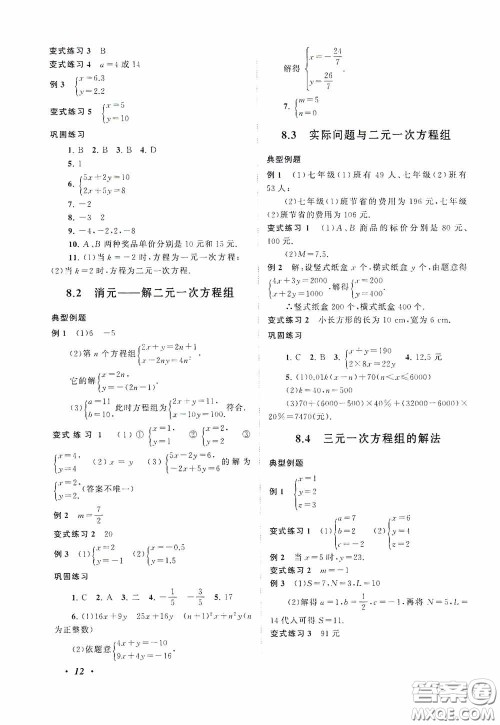 变式练习 3 B
变式练习 4 a=4或14
例 3 {x=6.3 y=2.2
变式练习 5 {x=5 y=10
巩固练习
1. B 2. B 3. B 4. D
5. 1
6. {5x+2y=10 2x+5y=8
7. -2
8. -3 2
9. -4,-2,2,-8
10. A、B两种奖品单价分别是10元、15元.
11. (1)当k=-2时,方程为一元一次方程;
(2)当k=2时,方程为二元一次方程.
8.2 消元——解二元一次方程组
典型例题
例 1 (1)6 -5
(2)第n个方程组{2x+y=2n+1 x-2ny=4n².
它的解{x=2n, y=-2n+1.
(3){a=11 b=10. 此时方程组{x=11 y=-10 符合.
变式练习 1 (1)①{x=1, y=1 ②{x=2, y=2 ③
{x=4, y=4 (2)x=y (3){3x-2y=6, 5x-2y=8 的解为
{x=2, y=2.(答案不唯一)
例 2 m=7/2
变式练习 2 20
例 3 (1){x=2 y=-1 (2){x=-0.5 y=1.5
巩固练习
1. C 2. A 3. 二 4. -1/5 -3/5 5. 17
6. (1)16x+9y 25x+16y (n+1)²x+n²y(n
为正整数)
(2)依题意{4x+y=-10 9x+4y=-16.
·12·
解得{x=-24/7, y=26/7.
7. {m=5 n=0
8.3 实际问题与二元一次方程组
典型例题
例 1 (1)七年级(1)班有49人、七年级(2)班有
53人;
(2)七年级(1)班节省的费用为196元,七年级
(2)班节省的费用为106元.
变式练习 1 (1)A、B商品的标价分别是80元、
100元.
(2)M=7.5.
例 2 解:设竖式纸盒x个,横式纸盒y个,由题意得
{4x+3y=2000, x+2y=1000. 解得{x=200 y=400
∴竖式纸盒200个,横式纸盒400个.
变式练习 2 小长方形的长为10 cm,宽为6 cm.
巩固练习
1. C 2. B 3. {x+y=190 2×8x=22y 4. 12.5元
5. (1)0.01k(x-n)+70(n<x≤6000)
(2)k=40,n=500
(3)70+(6000-500)×40%+(32000-6000)×
20%=7470(元).
8.4 三元一次方程组的解法
典型例题
例 1 {x=1 y=2 z=3
变式练习 1 (1){a=7 b=2 c=-2 (2){x=6 y=4 z=1
例 2 当x=5时,y=23.
变式练习 2 m=-1
例 3 (1)S=7,N=3,L=10.
(2)解得a=1,b=1/2,c=-1,再将N=5,L=
14代入可得S=11.
变式练习 3 91元